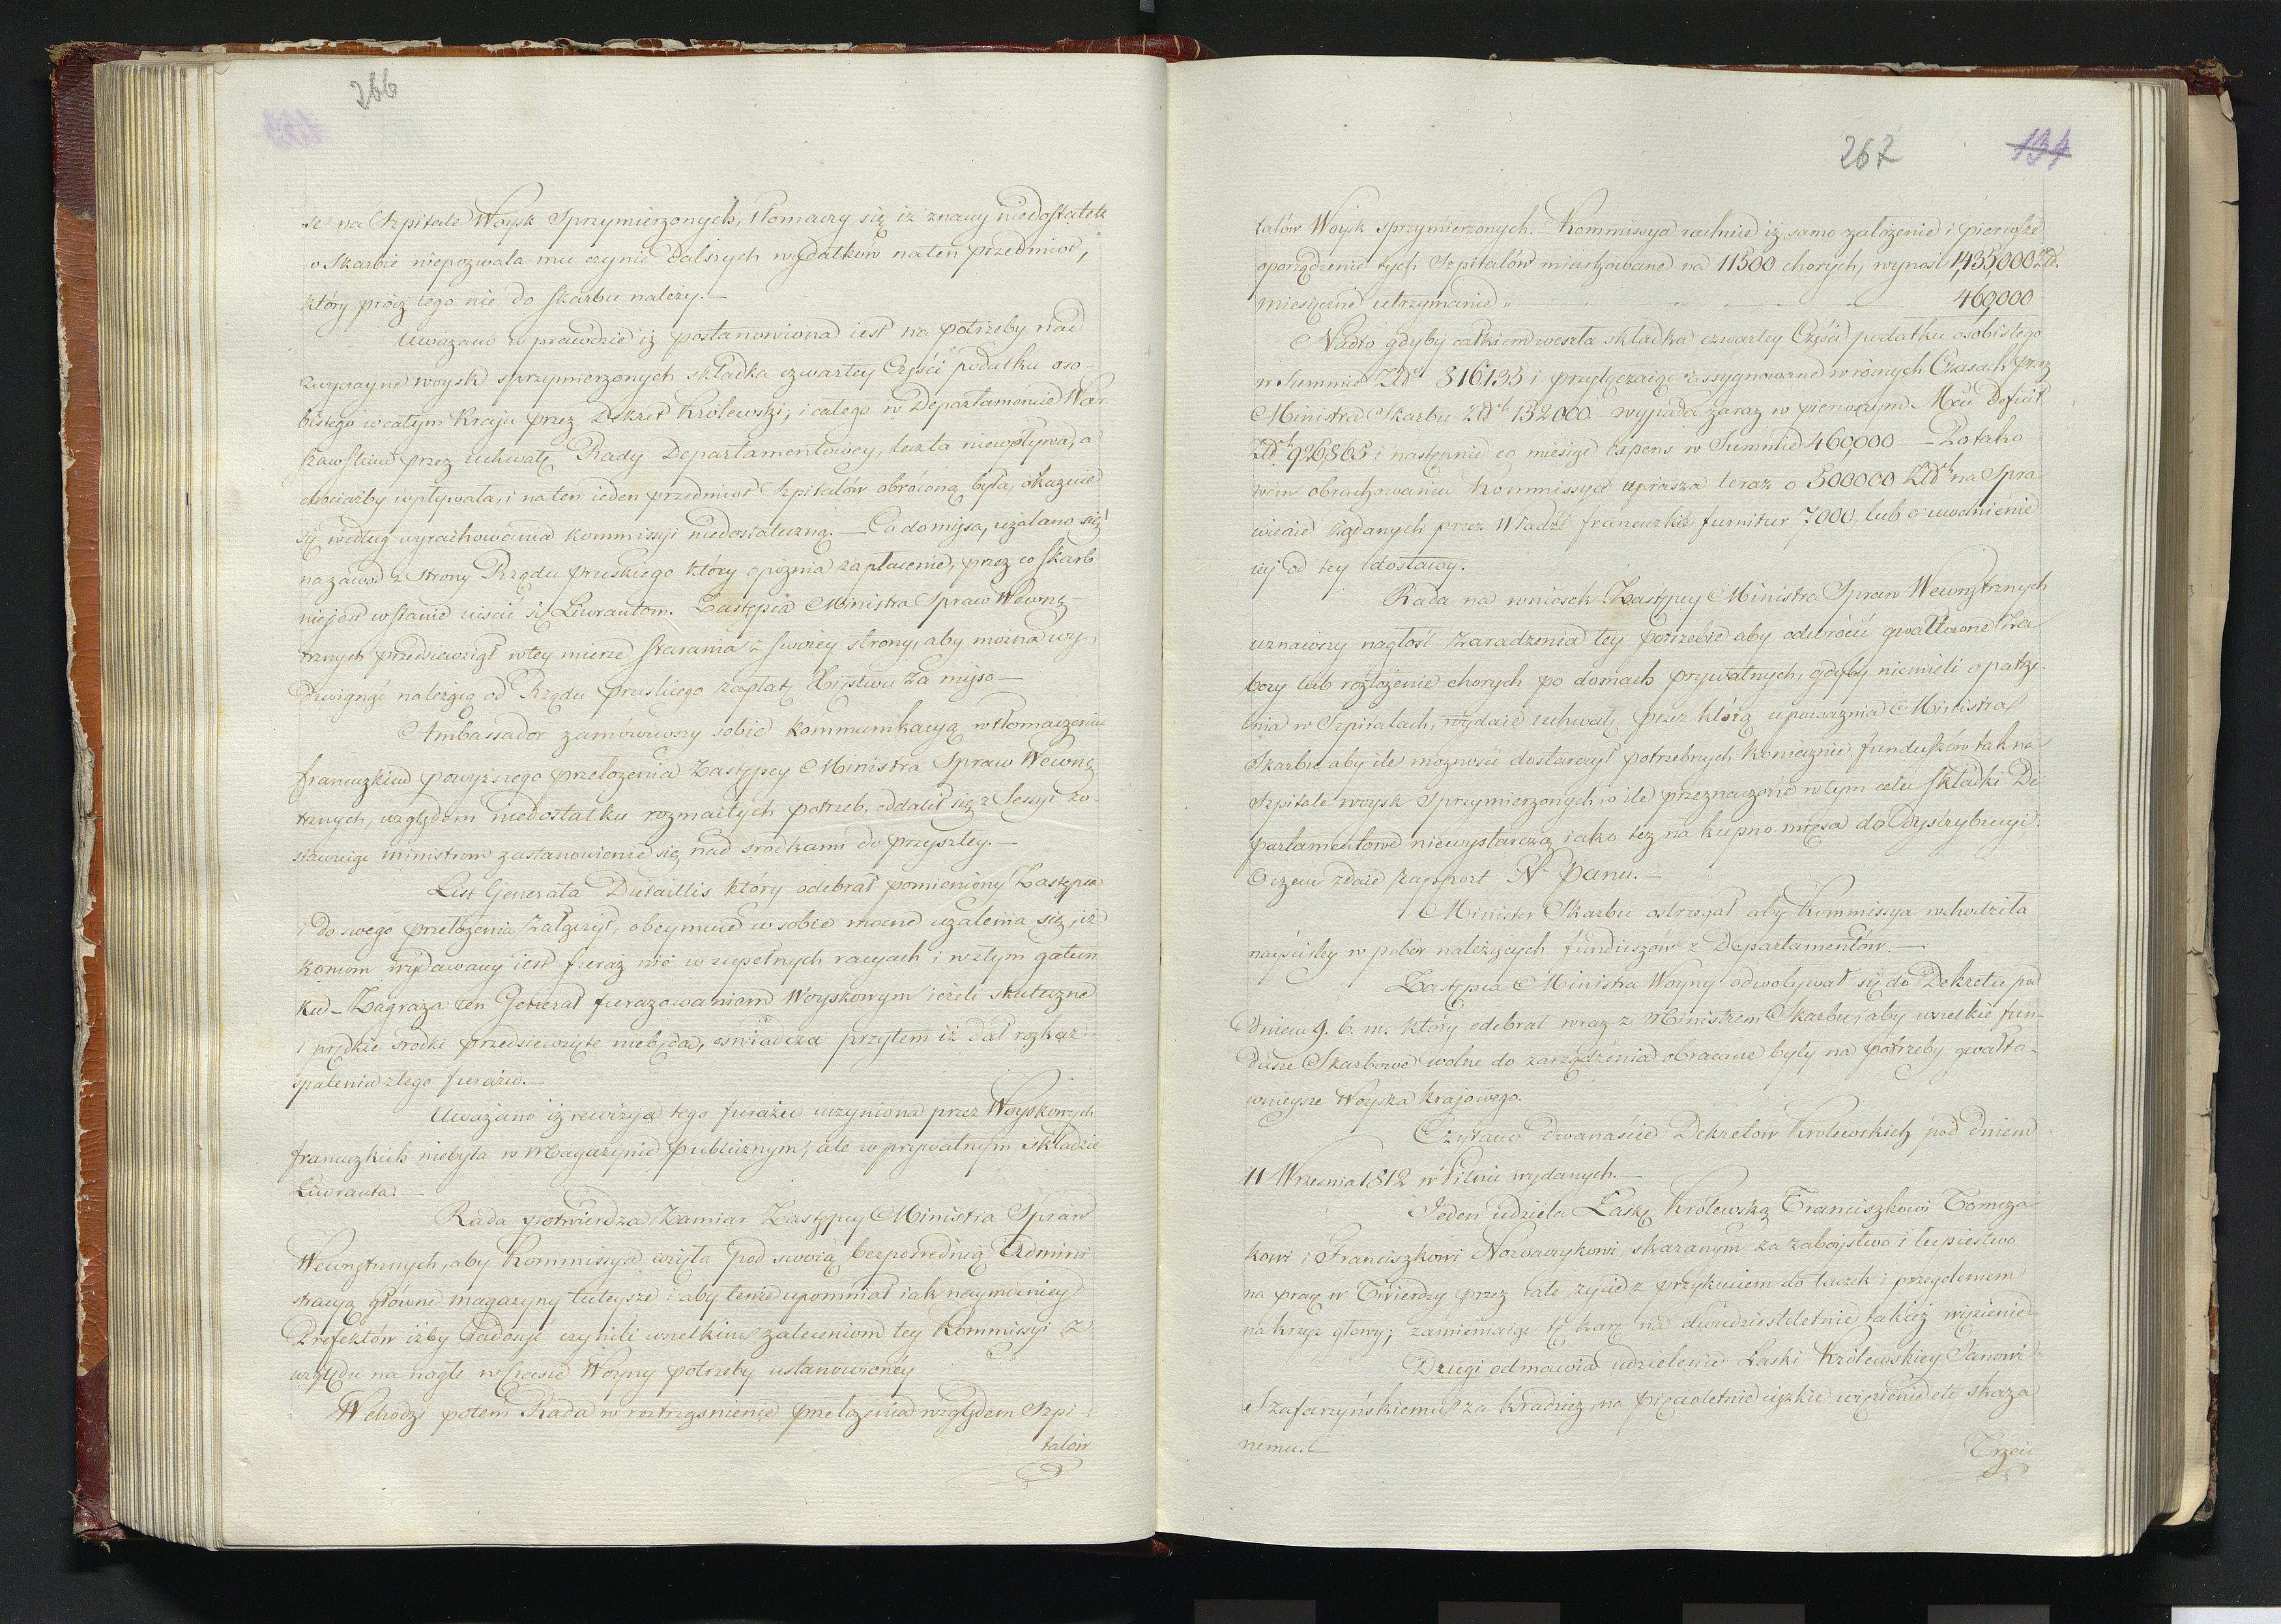 266
se na Szpitale Woysk Sprzymierzonych, tłomaczy się iż znany niedostatek
w Skarbie niepozwala mu czynić dalszych wydatków na ten przedmiot,
który prócz tego nie do skarbu należy.—
Uważano w prawdzie iż postanowiona iest na potrzeby nad
zwyczayne woysk sprzymierzonych składka czwartey Części podatku oso
bistego w całym Kraju przez Dekret Królewski, i całego w Departamencie War
szawskim przez uchwałę Rady Departamentowey, lecz ta niewpływa, a
chociażby wpływała, i na ten ieden przedmiot Szpitalów obróconą była, okazuie
się według wyrachowania Kommissyi niedostateczną.— Co do mięsa, użalano się
na zawod z strony Rządu pruskiego który opoznia zapłacenie, przez co skarb
nie jest w stanie uiscić się Liwerantom. Zastępca Ministra Spraw Wewnę
trznych przedsiewziął w tey mierze starania z swoiey strony, aby można wy
dzwignąć należącą od Rządu pruskiego zapłatę Xięstwu za mięso—
Ambassador zamówiwszy sobie kommunikacyą w tłomaczeniu
francuzkim powyższego przełożenia Zastępcy Ministra Spraw Wewnę
trznych, względem niedostatku rozmaitych potrzeb, oddalił się z Sessyi zo-
stawuiąc ministrom zastanowienie się nad środkami do przyszłey.—
List Generała Dutaillis który odebrał pomieniony Zastępca
i do swego przełożenia załączył, obeymuie w sobie mocne użalenia się, iż
koniom wydawany iest furaż nie w zupełnych racyach i w złym gatun
ku— Zagraża ten Generał furażowaniem Woyskowym ieżeli skuteczne
i prędkie środki przedsiewzięte niebędą, oświadcza przytem iż dał rozkaz
spalenia złego furażu.—
Uważano iż rewizya tego furażu uczyniona przez Woyskowych
francuzkich niebyła w Magazynie publicznym, ale w prywatnym składzie
Liweranta.—
Rada potwierdza Zamiar Zastępcy Ministra Spraw
Wewnętrznych, aby Kommissya wzięła pod swoią bezpośrednią Admini
stracyą główne magazyny tuteysze i aby tenże upomniał iak naymocniey
Prefektów iżby zadosyć czynili wszelkim zaleceniom tey Kommissyi z
względu na nagłe w Czasie Woyny potrzeby ustanowioney
Wchodzi potem Rada w roztrząśnienie przełożenia względem Szpi-
talów
267
194
talów Woysk sprzymierzonych.— Kommissya rachuie iż samo założenie i pierwsze
oporządzenie tych Szpitalów miarkowane na 11500 chorych, wynosi 1,435000 Złł.
miesięczne utrzymanie „ 460,000
Nadto gdyby całkiem weszła składka czwartey Części podatku osobistego
w Summie Złł. 816,135 i przyłączaiąc assygnowane w różnych Czasach przez
Ministra Skarbu Złł. 152000 wypada zaraz w pierwszym Mcu Deficit
Złł. 926,865 i następnie co miesiąc expens w Summie 460,000 — Po tako
wém obrachowaniu Kommissya uprasza teraz o 500000 Złł. na Spra
wienie żądanych przez Władze francuzkie furnitur 7000, lub o uwolnienie
iey od tey dostawy.
Rada na wniosek Zastępcy Ministra Spraw Wewnętrznych
uznawszy nagłość zaradzenia tey potrzebie aby odwrócić gwałtowne Za
bory lub rozłożenie chorych po domach prywatnych, gdyby niemieli opatrze-
nia w Szpitalach, wydaie uchwałę przez którą upoważnia Ministra
Skarbu aby ile możności dostarczył potrzebnych koniecznie funduszów tak na
Szpitale woysk Sprzymierzonych, o ile przeznaczone w tym celu składki De
partamentowe niewystarczą iako też na kupno mięsa do dystrybucyi.
O czem zdaie rapport N. Panu.—
Minister Skarbu ostrzegał aby Kommissya wchodziła
nayściśley w pobór należących funduszów z Departamentów.—
Zastępca Ministra Woyny odwoływał się do Dekretu pod
Dniem 9. b. m. który odebrał wraz z Ministrem Skarbu, aby wszelkie fun-
dusze Skarbowe wolne do zarządzenia obracane były na potrzeby gwałto-
wnieysze Woyska krajowego.
Czytano dwanaście Dekretów Królewskich pod dniem
11 Września 1812 w Pilnic wydanych.—
Jeden udziela Łaskę Królewską Franciszkowi Tomcza
kowi i Franciszkowi Nowaczykowi, skazanym za zaboystwo i łupiestwo
na pracę w Twierdzy przez całe życie z przykuciem do taczek i przegoleniem
na krzyż głowy; zamieniaiąc tę karę na dwudziestoletnie takież więzienie
Drugi odmawia udzielenie Łaski Królewskiey Janowi
Szafarzyńskiemu za kradzież, na pięcioletnie ciężkie więzienie etc skaza
nemu.—
Trzeci